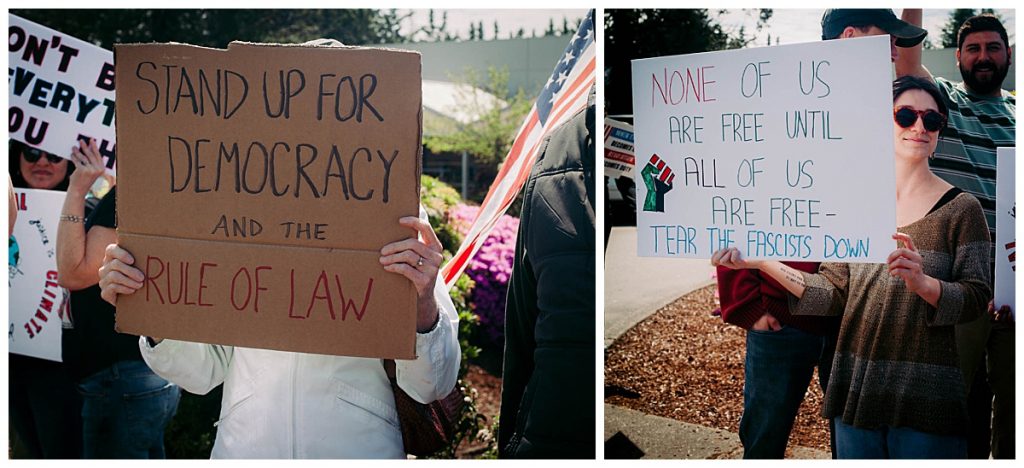 ON'T B
EVERYT
YOU
STAND UP FOR
DEMOCRACY
AND THE
RULE OF LAW
CLIMATE
NONE OF US
ARE FREE UNTIL
ALL OF US
ARE FREE-
TEAR THE FASCISTS DOWN
BECOMES
DUTY